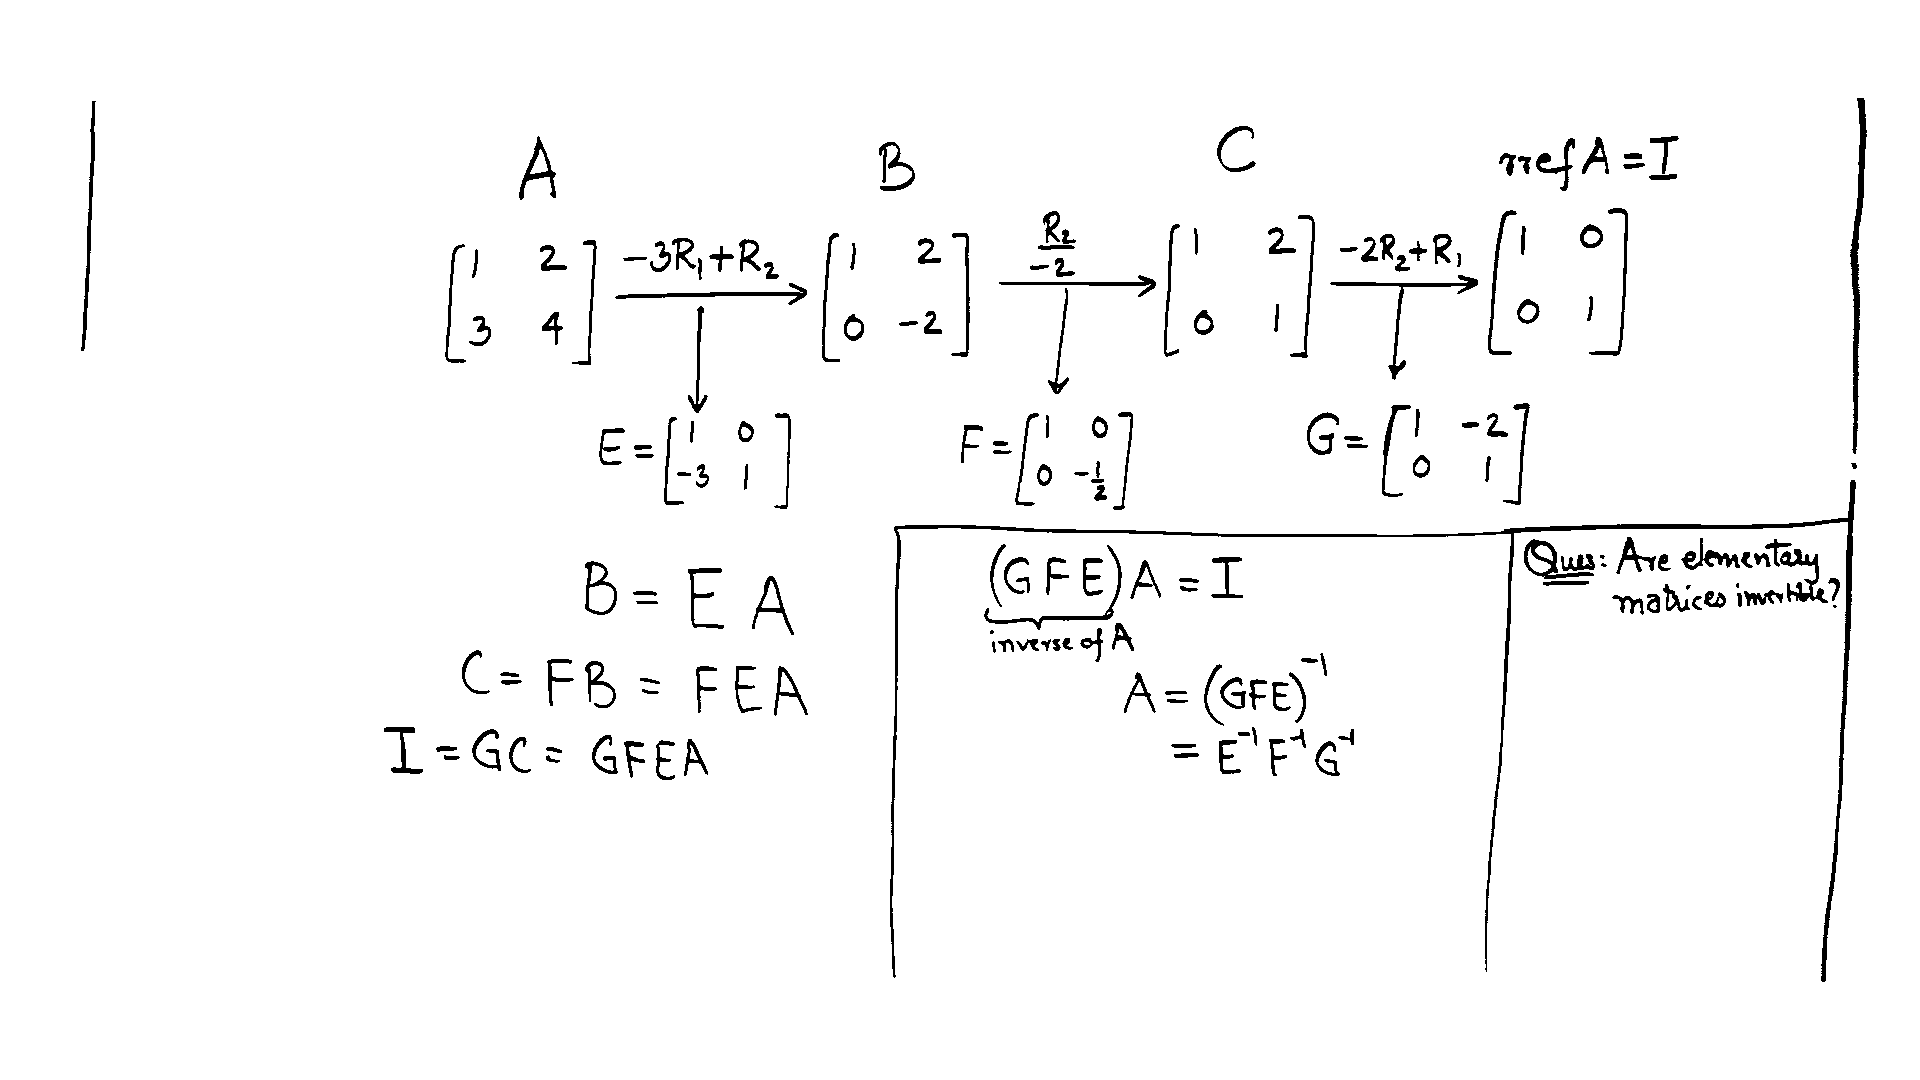 A B C rref A = I
[1 2; 3 4] -3R₁+R₂ → [1 2; 0 -2] R₂/-2 → [1 2; 0 1] -2R₂+R₁ → [1 0; 0 1]
E = [1 0; -3 1] F = [1 0; 0 -1/2] G = [1 -2; 0 1]
B = E A
C = FB = FEA
I = GC = GFEA
(GFE)A = I
inverse of A
A = (GFE)⁻¹
= E⁻¹ F⁻¹ G⁻¹
Ques: Are elementary
matrices invertible?